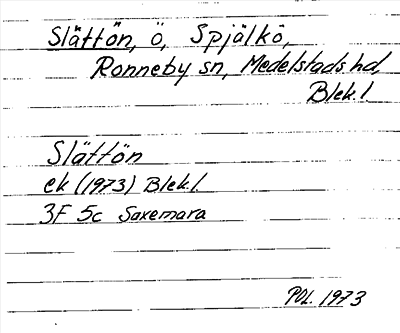 Slättön, ö, Spjälkö,
Ronneby sn, Medelstads hd,
Blek. l.
Slättön
ek (1973) Blek. l.
3F 5c Saxemara
POL. 1973